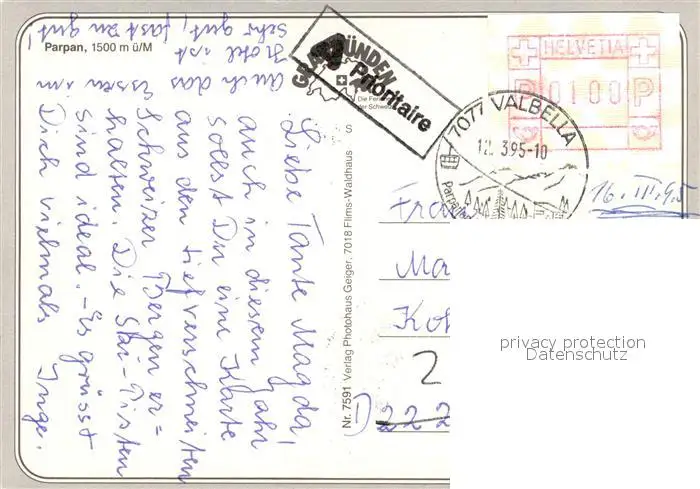 Parpan, 1500 m ü/M
Liebe Tante Magda,
auch in diesem Jahr
sollst Du eine Karte
aus den tiefverschneiten
Schweizer Bergen er=
halten. Die Ski-Pisten
sind ideal. - Es grüsst
Dich vielmals Inge.
Auch das Essen im
Hotel ist
sehr gut, fast zu gut!
Nr. 7591 Verlag Photohaus Geiger, 7018 Flims-Waldhaus
GRAUBÜNDEN
Die Fer
der Schweiz
A Prioritaire
HELVETIA
P 0100 P
7077 VALBELLA
12. 3.95-10
Parpan
16. III. 95
Frau
Ma
Kot
2
D 222
privacy protection
Datenschutz